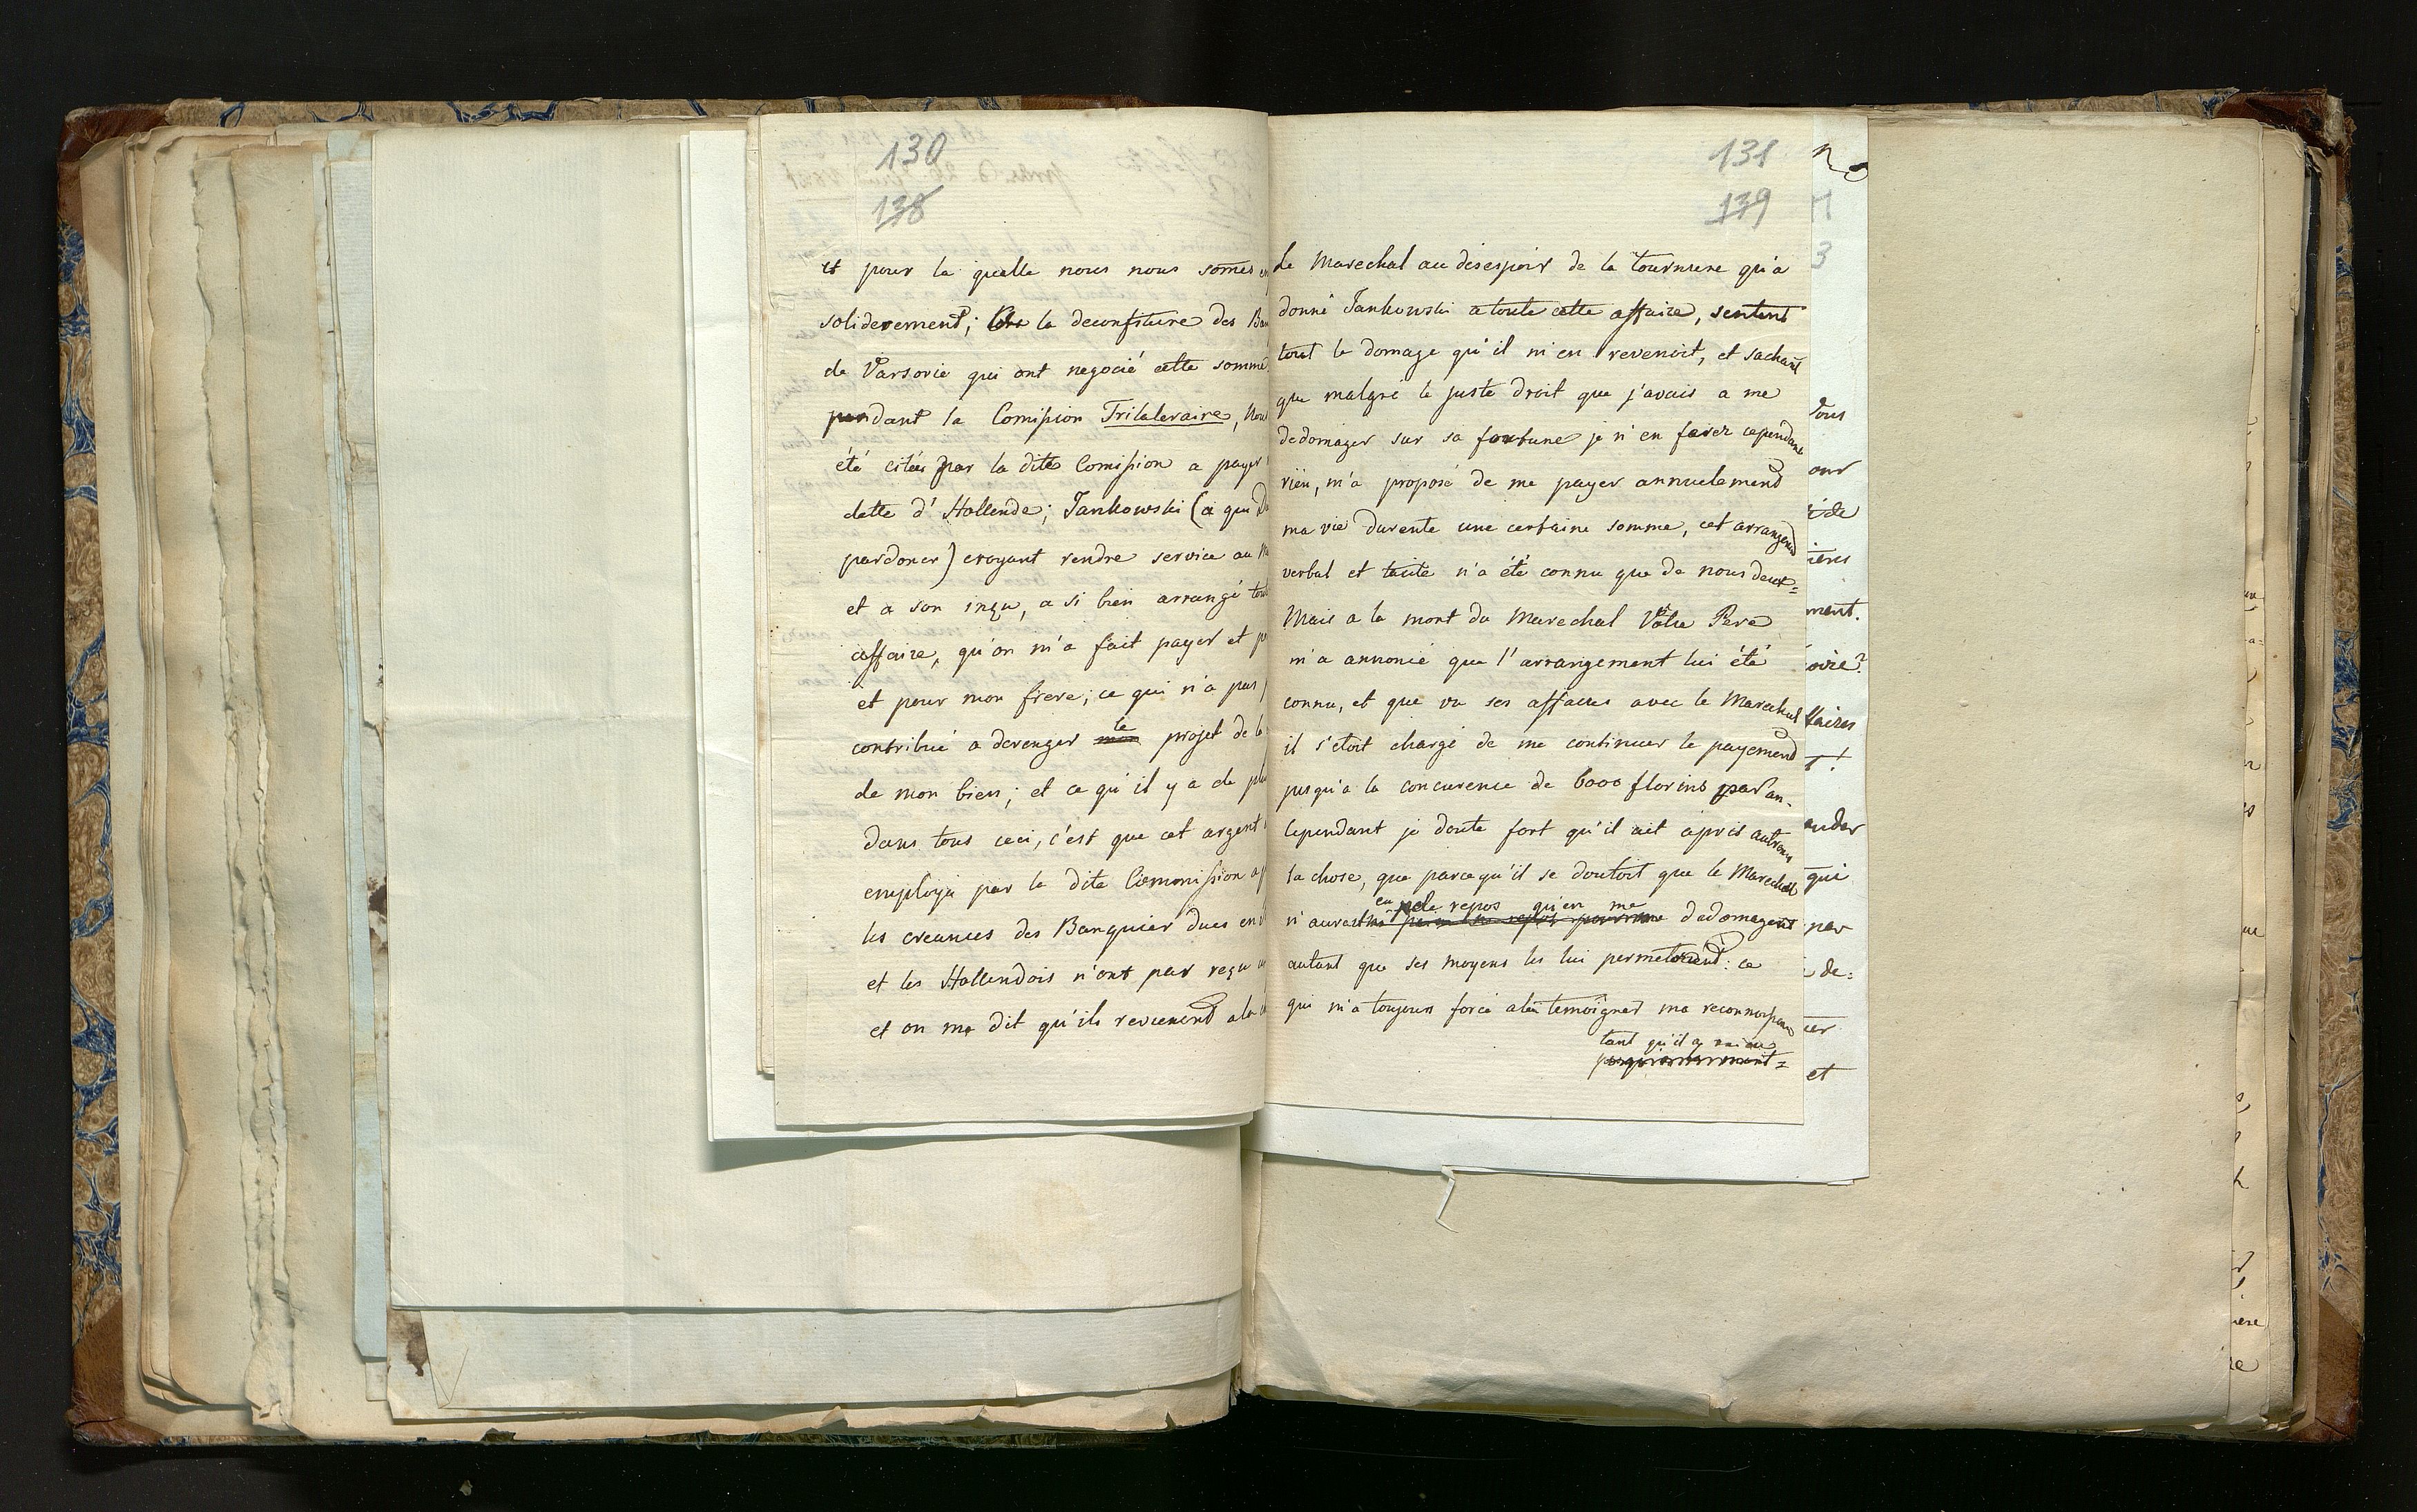 130
138
et pour la quelle nous nous somes
soliderement; la deconfiture des
de Varsovie qui ont negocié cette somme
pendant la Comission Trilateraire,
été citées par la dite Comission a payer
dette d'Hollende; Jankowski (a qui
pardoner) croyant rendre service au
et a son inçu, a si bien arrangé
affaire, qu'on m'a fait payer et
et pour mon frere; ce qui n'a pas
contribué a derenger le projet de
de mon bien; et ce qu'il y a de
dans tous ceci, c'est que cet argent
employé par la dite Commission
les creances des Banquier dues
et les Hollendois n'ont pas reçu
et on me dit qu'ils revienend a la
131
139
Le Marechal au desespoir de la tournure qu'a
donné Jankowski a toute cette affaire, sentent
tout le domage qu'il m'en revenoit, et sachant
que malgré le juste droit que j'avais a me
dedomager sur sa fortune je n'en ferez cependant
rien, m'a proposé de me payer annuelemend
ma vie durente une certaine somme, cet arrangemend
verbal et tacite n'a été connu que de nous deux=
Mais a la mort du Marechal Votre Pere
m'a annoncé que l'arrangement lui été
connu, et que vu ses affaires avec le Marechal
il s'etoit chargé de me continuer le payemend
jusqu'a la concurence de 6000 florins par an.
Cependant je doute fort qu'il ait apris autrement
la chose, que parcequ'il se doutoit que le Marechal
eu de repos qu'en me
n'auroit dedomageant
autant que ses moyens les lui permetoiend: ce
qui m'a toujours forcé a lui temoigner ma reconnoissance
tant qu'il a
n o
3
vous
our
ment.
oire?
faires
qui
par
de=
et